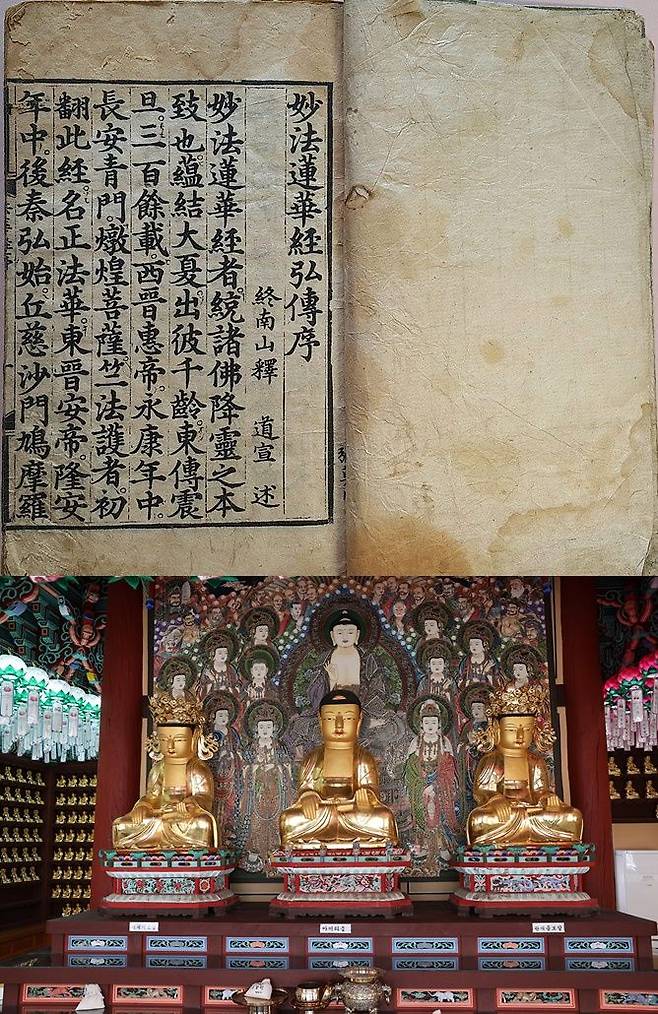 妙法蓮華經弘傳序
終南山釋 道宣 述
妙法蓮華經者。統諸佛降靈之本
致也。蘊結大夏。出彼千齡。東傳震
旦。三百餘載。西晉惠帝。永康年中。
長安青門。燉煌菩薩。竺法護者。初
翻此經。名正法華。東晉安帝。隆安
年中。後秦弘始。丘慈沙門鳩摩羅
아미타불
관세음보살